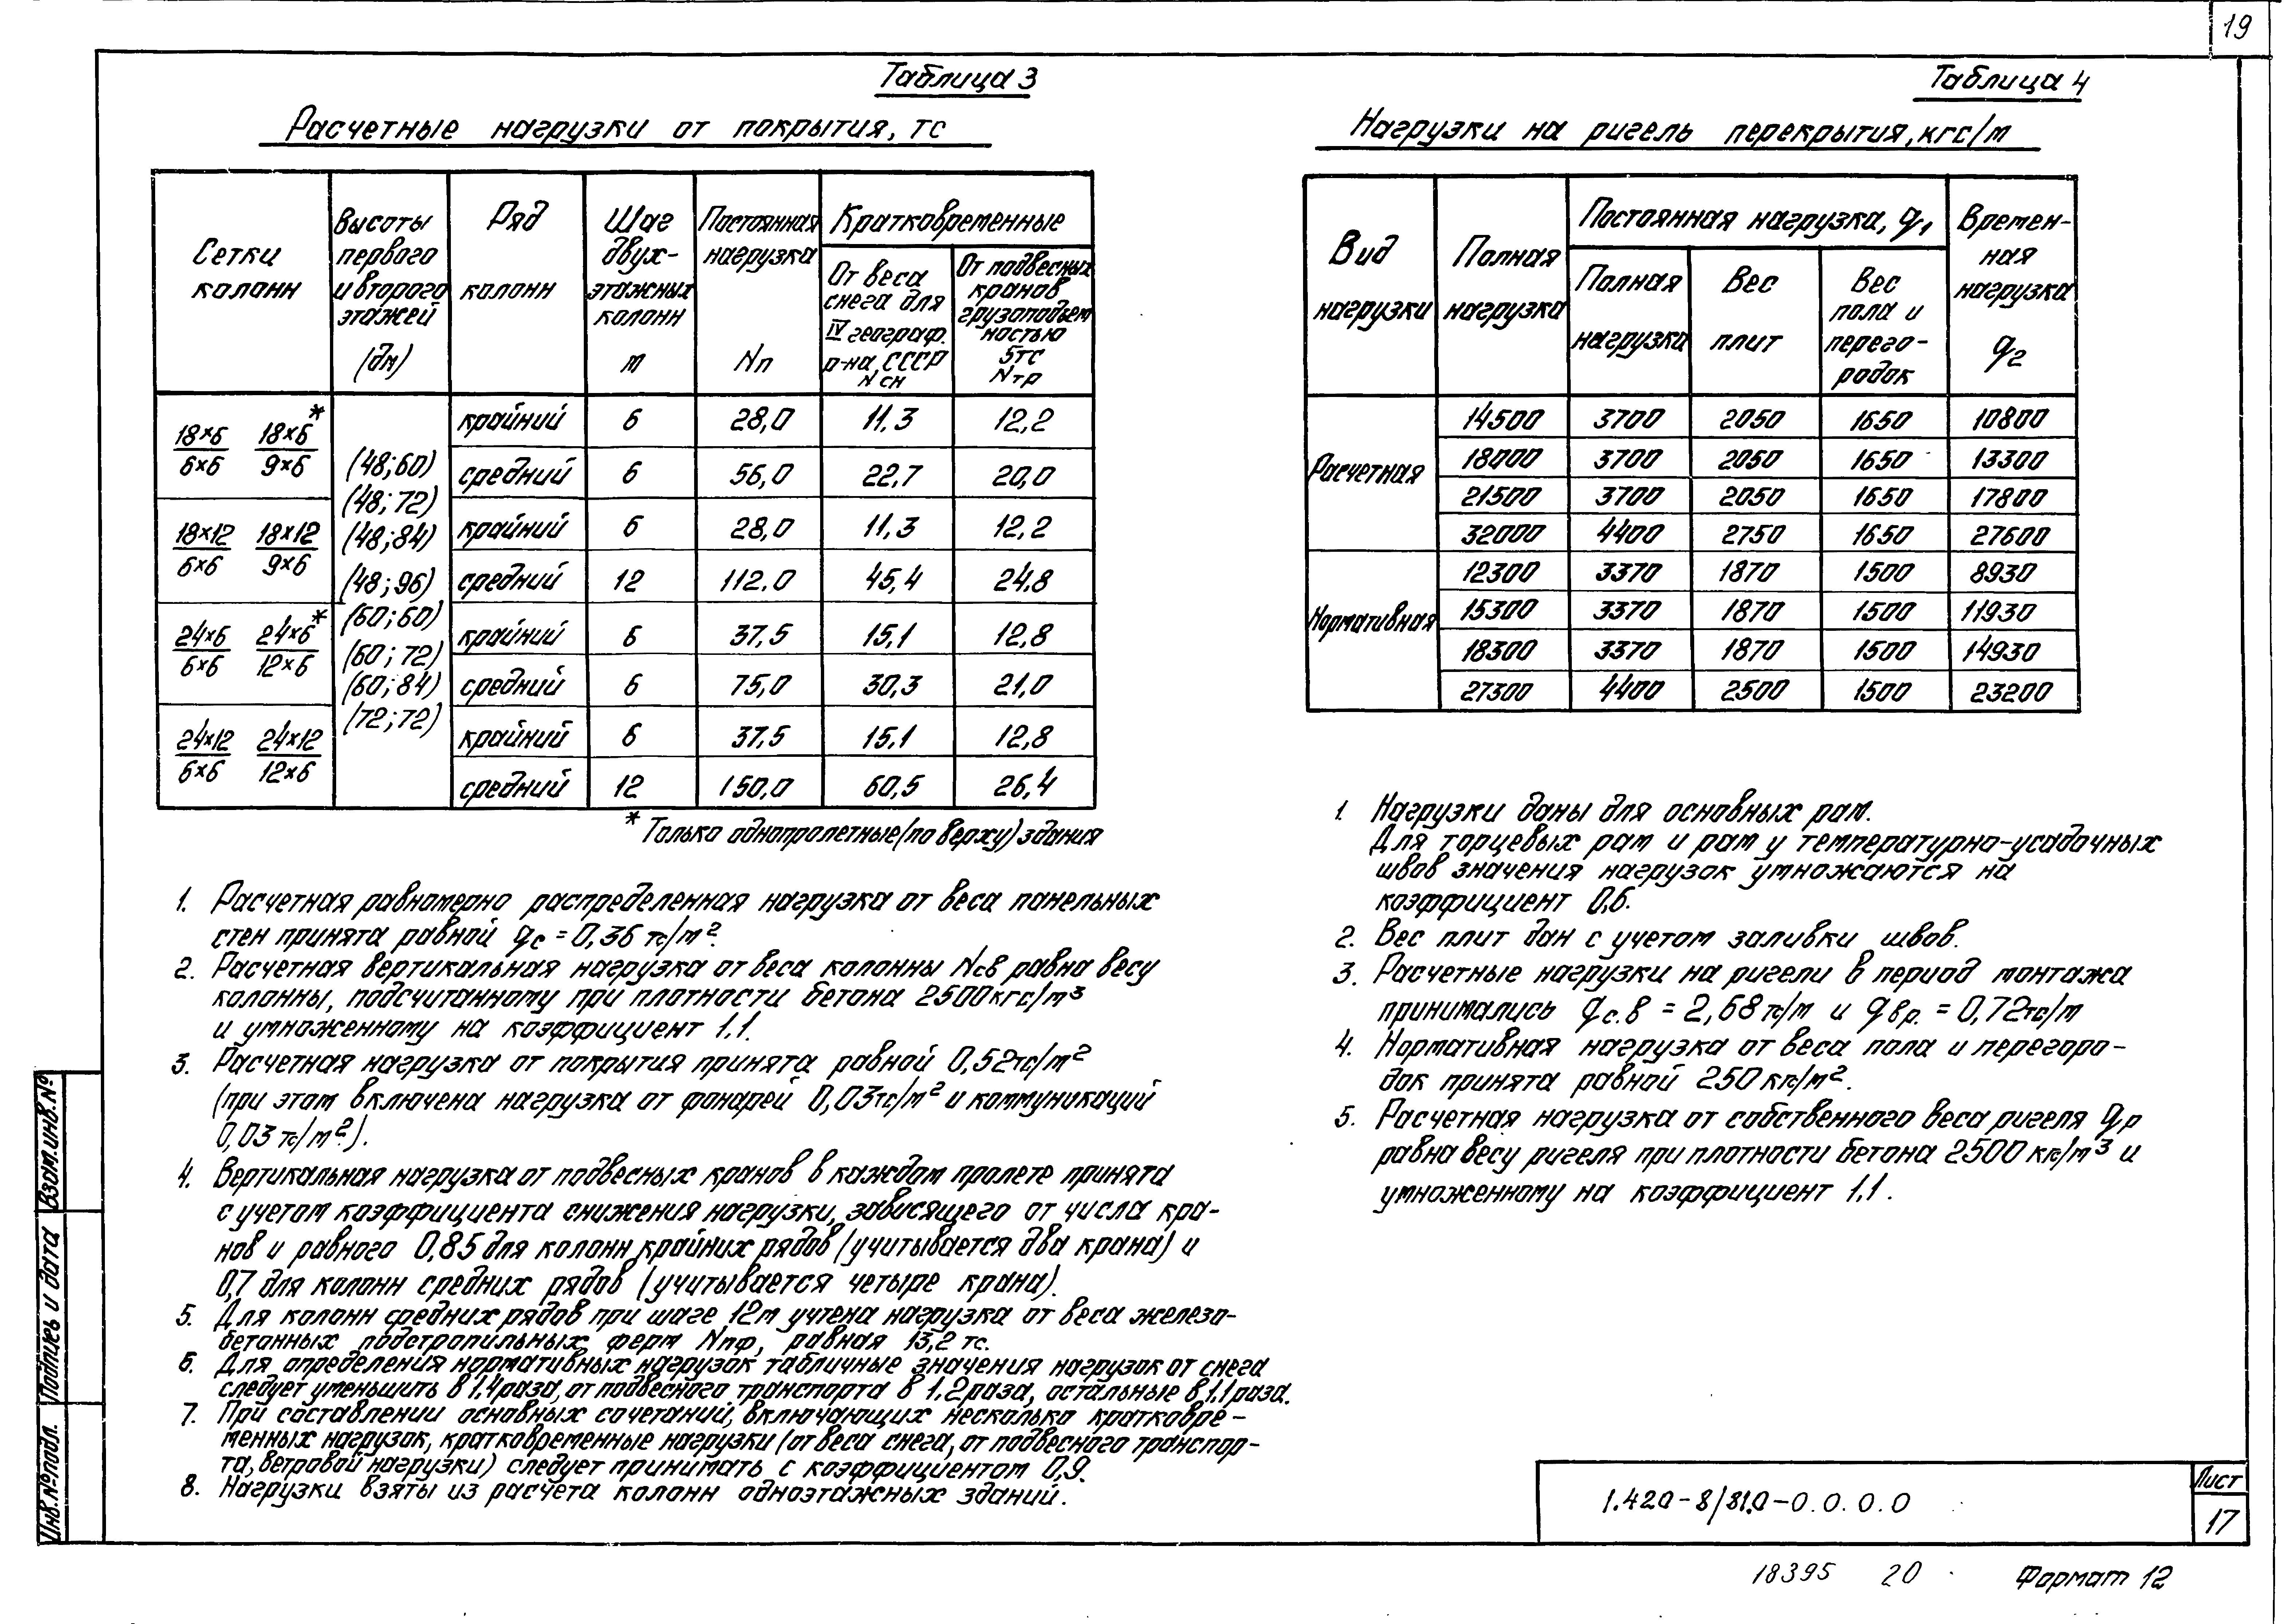 19
Таблица 3
Расчетные нагрузки от покрытия, тс
Сетки колонн
Высоты первого и второго этажей (дм)
Ряд колонн
Шаг двух-этажных колонн м
Постоянная нагрузка Nп
Кратковременные
От веса снега для IV географ. р-на, СССР Nсн
От подвесных кранов грузоподъемностью 5тс Nтр
18×6/6×6 18×6*/9×6
18×12/6×6 18×12/9×6
24×6/6×6 24×6*/12×6
24×12/6×6 24×12/12×6
(48;60)
(48;72)
(48;84)
(48;96)
(60;60)
(60;72)
(60;84)
(72;72)
крайний 6 28,0 11,3 12,2
средний 6 56,0 22,7 20,0
крайний 6 28,0 11,3 12,2
средний 12 112.0 45,4 24,8
крайний 6 37,5 15,1 12,8
средний 6 75,0 30,3 21,0
крайний 6 37,5 15,1 12,8
средний 12 150,0 60,5 26,4
* Только однопролетные (по верху) здания
1. Расчетная равномерно распределенная нагрузка от веса панельных
стен принята равной qс = 0,36 тс/м².
2. Расчетная вертикальная нагрузка от веса колонны Nсв равна весу
колонны, подсчитанному при плотности бетона 2500кгс/м³
и умноженному на коэффициент 1,1.
3. Расчетная нагрузка от покрытия принята равной 0,52тс/м²
(при этом включена нагрузка от фонарей 0,03тс/м² и коммуникаций
0,03 тс/м².).
4. Вертикальная нагрузка от подвесных кранов в каждом пролете принята
с учетом коэффициента снижения нагрузки, зависящего от числа кра-
нов и равного 0,85 для колонн крайних рядов (учитывается два крана) и
0,7 для колонн средних рядов (учитывается четыре крана).
5. Для колонн средних рядов при шаге 12м учтена нагрузка от веса железо-
бетонных подстропильных ферм Nпф, равная 13,2 тс.
6. Для определения нормативных нагрузок табличные значения нагрузок от снега
следует уменьшить в 1,4 раза, от подвесного транспорта в 1,2 раза, остальные в 1,1 раза.
7. При составлении основных сочетаний, включающих несколько кратковре-
менных нагрузок, кратковременные нагрузки (от веса снега, от подвесного транспор-
та, ветровой нагрузки) следует принимать с коэффициентом 0,9.
8. Нагрузки взяты из расчета колонн одноэтажных зданий.
Таблица 4
Нагрузки на ригель перекрытия, кгс/м
Вид нагрузки
Полная нагрузка
Постоянная нагрузка, q1
Полная нагрузка
Вес плит
Вес пола и перего-родок
Времен-ная нагрузка q2
Расчетная
14500 3700 2050 1650 10800
18000 3700 2050 1650 13300
21500 3700 2050 1650 17800
32000 4400 2750 1650 27600
Нормативная
12300 3370 1870 1500 8930
15300 3370 1870 1500 11930
18300 3370 1870 1500 14930
27300 4400 2500 1500 23200
1. Нагрузки даны для основных рам.
Для торцевых рам и рам у температурно-усадочных
швов значения нагрузок умножаются на
коэффициент 0,6.
2. Вес плит дан с учетом заливки швов.
3. Расчетные нагрузки на ригели в период монтажа
принимались qс.в = 2,68тс/м и qвр. = 0,72тс/м
4. Нормативная нагрузка от веса пола и перегоро-
док принята равной 250 кгс/м².
5. Расчетная нагрузка от собственного веса ригеля qр
равна весу ригеля при плотности бетона 2500 кгс/м³ и
умноженному на коэффициент 1,1.
Инв.№подл.
Подпись и дата
Взам.инв.№
1.420-8/81.0-0.0.0.0
Лист
17
18395 20
Формат 12